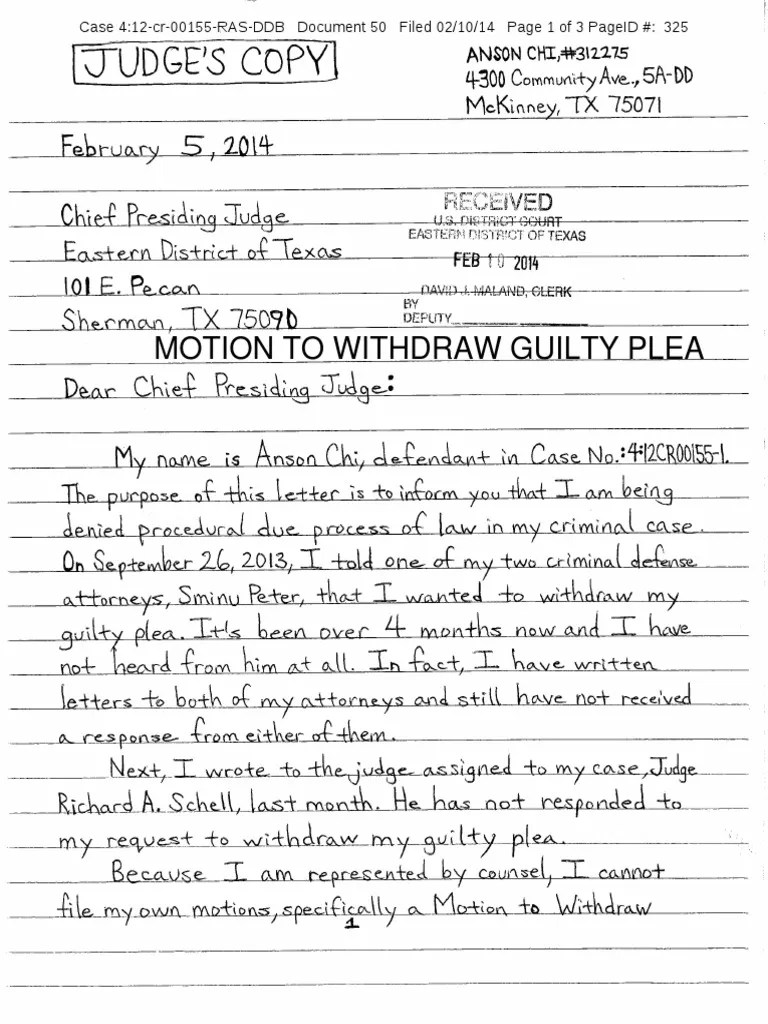 Case 4:12-cr-00155-RAS-DDB Document 50 Filed 02/10/14 Page 1 of 3 PageID #: 325
JUDGE'S COPY
ANSON CHI,#312275
4300 Community Ave., 5A-DD
McKinney, TX 75071
February 5, 2014
Chief Presiding Judge
Eastern District of Texas
101 E. Pecan
Sherman, TX 75090
RECEIVED
U.S. DISTRICT COURT
EASTERN DISTRICT OF TEXAS
FEB 10 2014
DAVID J. MALAND, CLERK
BY
DEPUTY
MOTION TO WITHDRAW GUILTY PLEA
Dear Chief Presiding Judge:
My name is Anson Chi, defendant in Case No.:4:12CR00155-1.
The purpose of this letter is to inform you that I am being
denied procedural due process of law in my criminal case.
On September 26, 2013, I told one of my two criminal defense
attorneys, Sminu Peter, that I wanted to withdraw my
guilty plea. It's been over 4 months now and I have
not heard from him at all. In fact, I have written
letters to both of my attorneys and still have not received
a response from either of them.
Next, I wrote to the judge assigned to my case, Judge
Richard A. Schell, last month. He has not responded to
my request to withdraw my guilty plea.
Because I am represented by counsel, I cannot
file my own motions, specifically a Motion to Withdraw
1